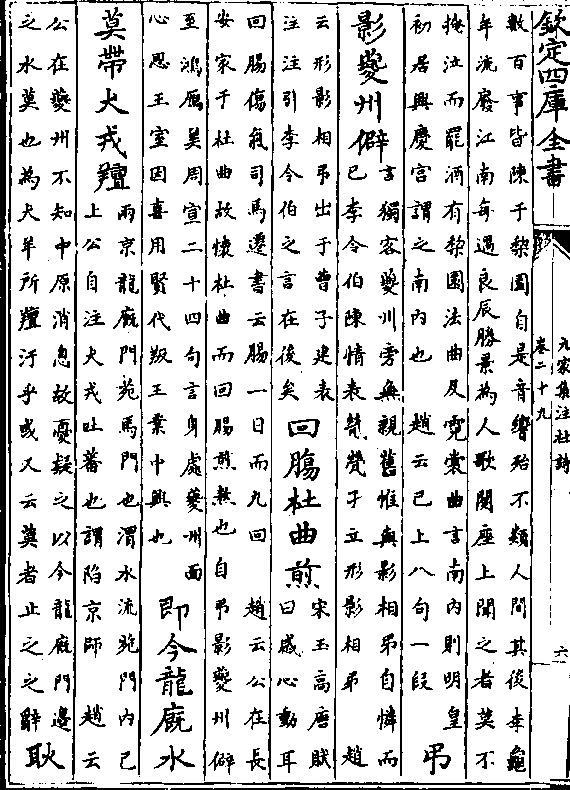 欽定四庫全書
九家集注杜詩
卷二十九
六
數百事皆陳于梨園自是音響殆不類人間其後李龜
年流廢江南每遇良辰勝景為人歌闋座上聞之者莫不
掩泣而罷酒有梨園法曲及霓裳曲言南内則明皇
初居興慶宫謂之南内也 趙云已上八句一段
弔
影夔州僻
言獨客夔州旁無親舊惟與影相弔自憐而
已李令伯陳情表煢煢孑立形影相弔 趙
云形影相弔出于曹子建表
注注引李令伯之言在後矣
回腸杜曲煎
宋玉高唐賦
曰感心動耳
回腸傷氣司馬遷書云腸一日而九回 趙云公在長
安家于杜曲故懷杜曲而回腸煎熱也自弔影夔州僻
至鴻雁美周宣二十四句言身處夔州而
心思王室因喜用賢代叛王業中興也
即今龍廐水
莫帶犬戎羶
兩京龍廐門苑馬門也渭水流苑門内已
上公自注犬戎吐蕃也謂陷京師 趙云
公在夔州不知中原消息故憂疑之以今龍廐門邊
之水莫也為犬羊所羶汙乎或又云莫者止之之辭
耿